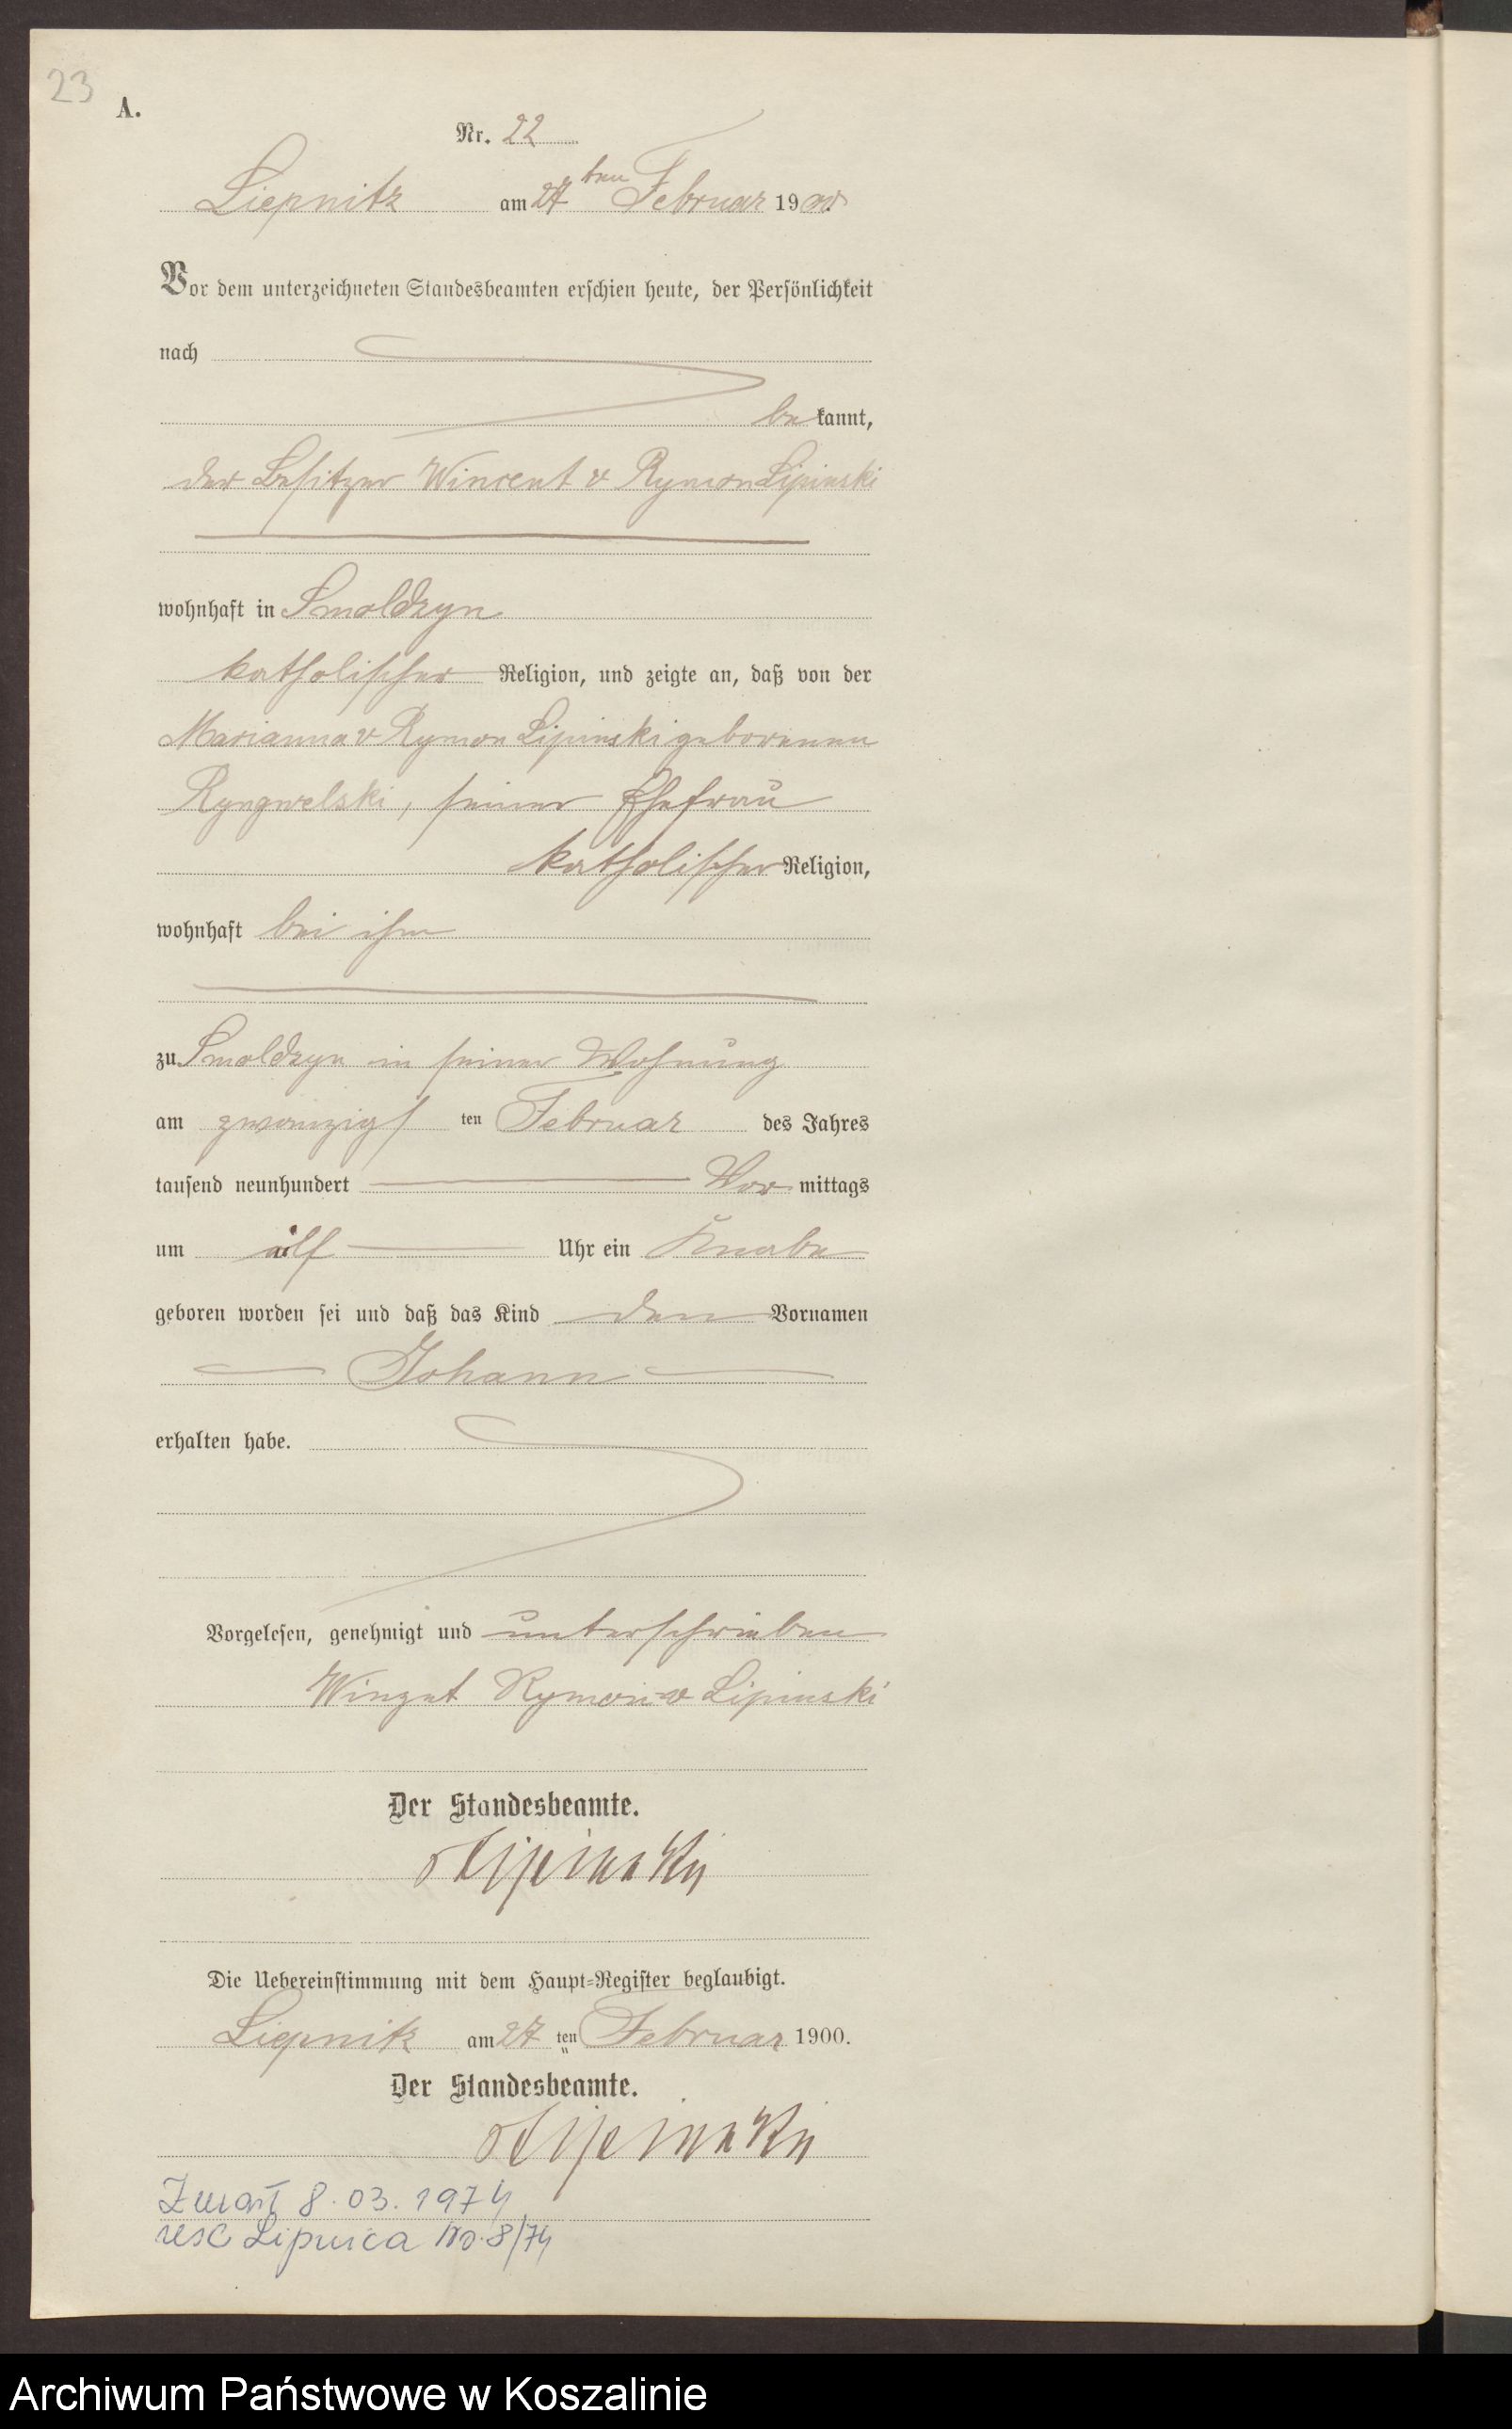 23
A.
Nr. 22
Liepnitz am 27ten Februar 1900.
Vor dem unterzeichneten Standesbeamten erschien heute, der Persönlichkeit
nach
bekannt,
der Besitzer Wincent v Rymon Lipinski
wohnhaft in Smoldzyn
katholischer Religion, und zeigte an, daß von der
Marianna v Rymon Lipinski geborenen
Ryngwelski, seiner Ehefrau
katholischer Religion,
wohnhaft bei ihm
zu Smoldzyn in seiner Wohnung
am zwanzigsten Februar des Jahres
tausend neunhundert Vormittags
um elf Uhr ein Knabe
geboren worden sei und daß das Kind den Vornamen
Johann
erhalten habe.
Vorgelesen, genehmigt und unterschrieben
Winzent Rymon v Lipinski
Der Standesbeamte.
v Lipinski
Die Uebereinstimmung mit dem Haupt=Register beglaubigt.
Liepnitz am 27ten Februar 1900.
Der Standesbeamte.
v Lipinski
Zmarł 8.03.1974
USC Lipnica Nr. 8/74
Archiwum Państwowe w Koszalinie